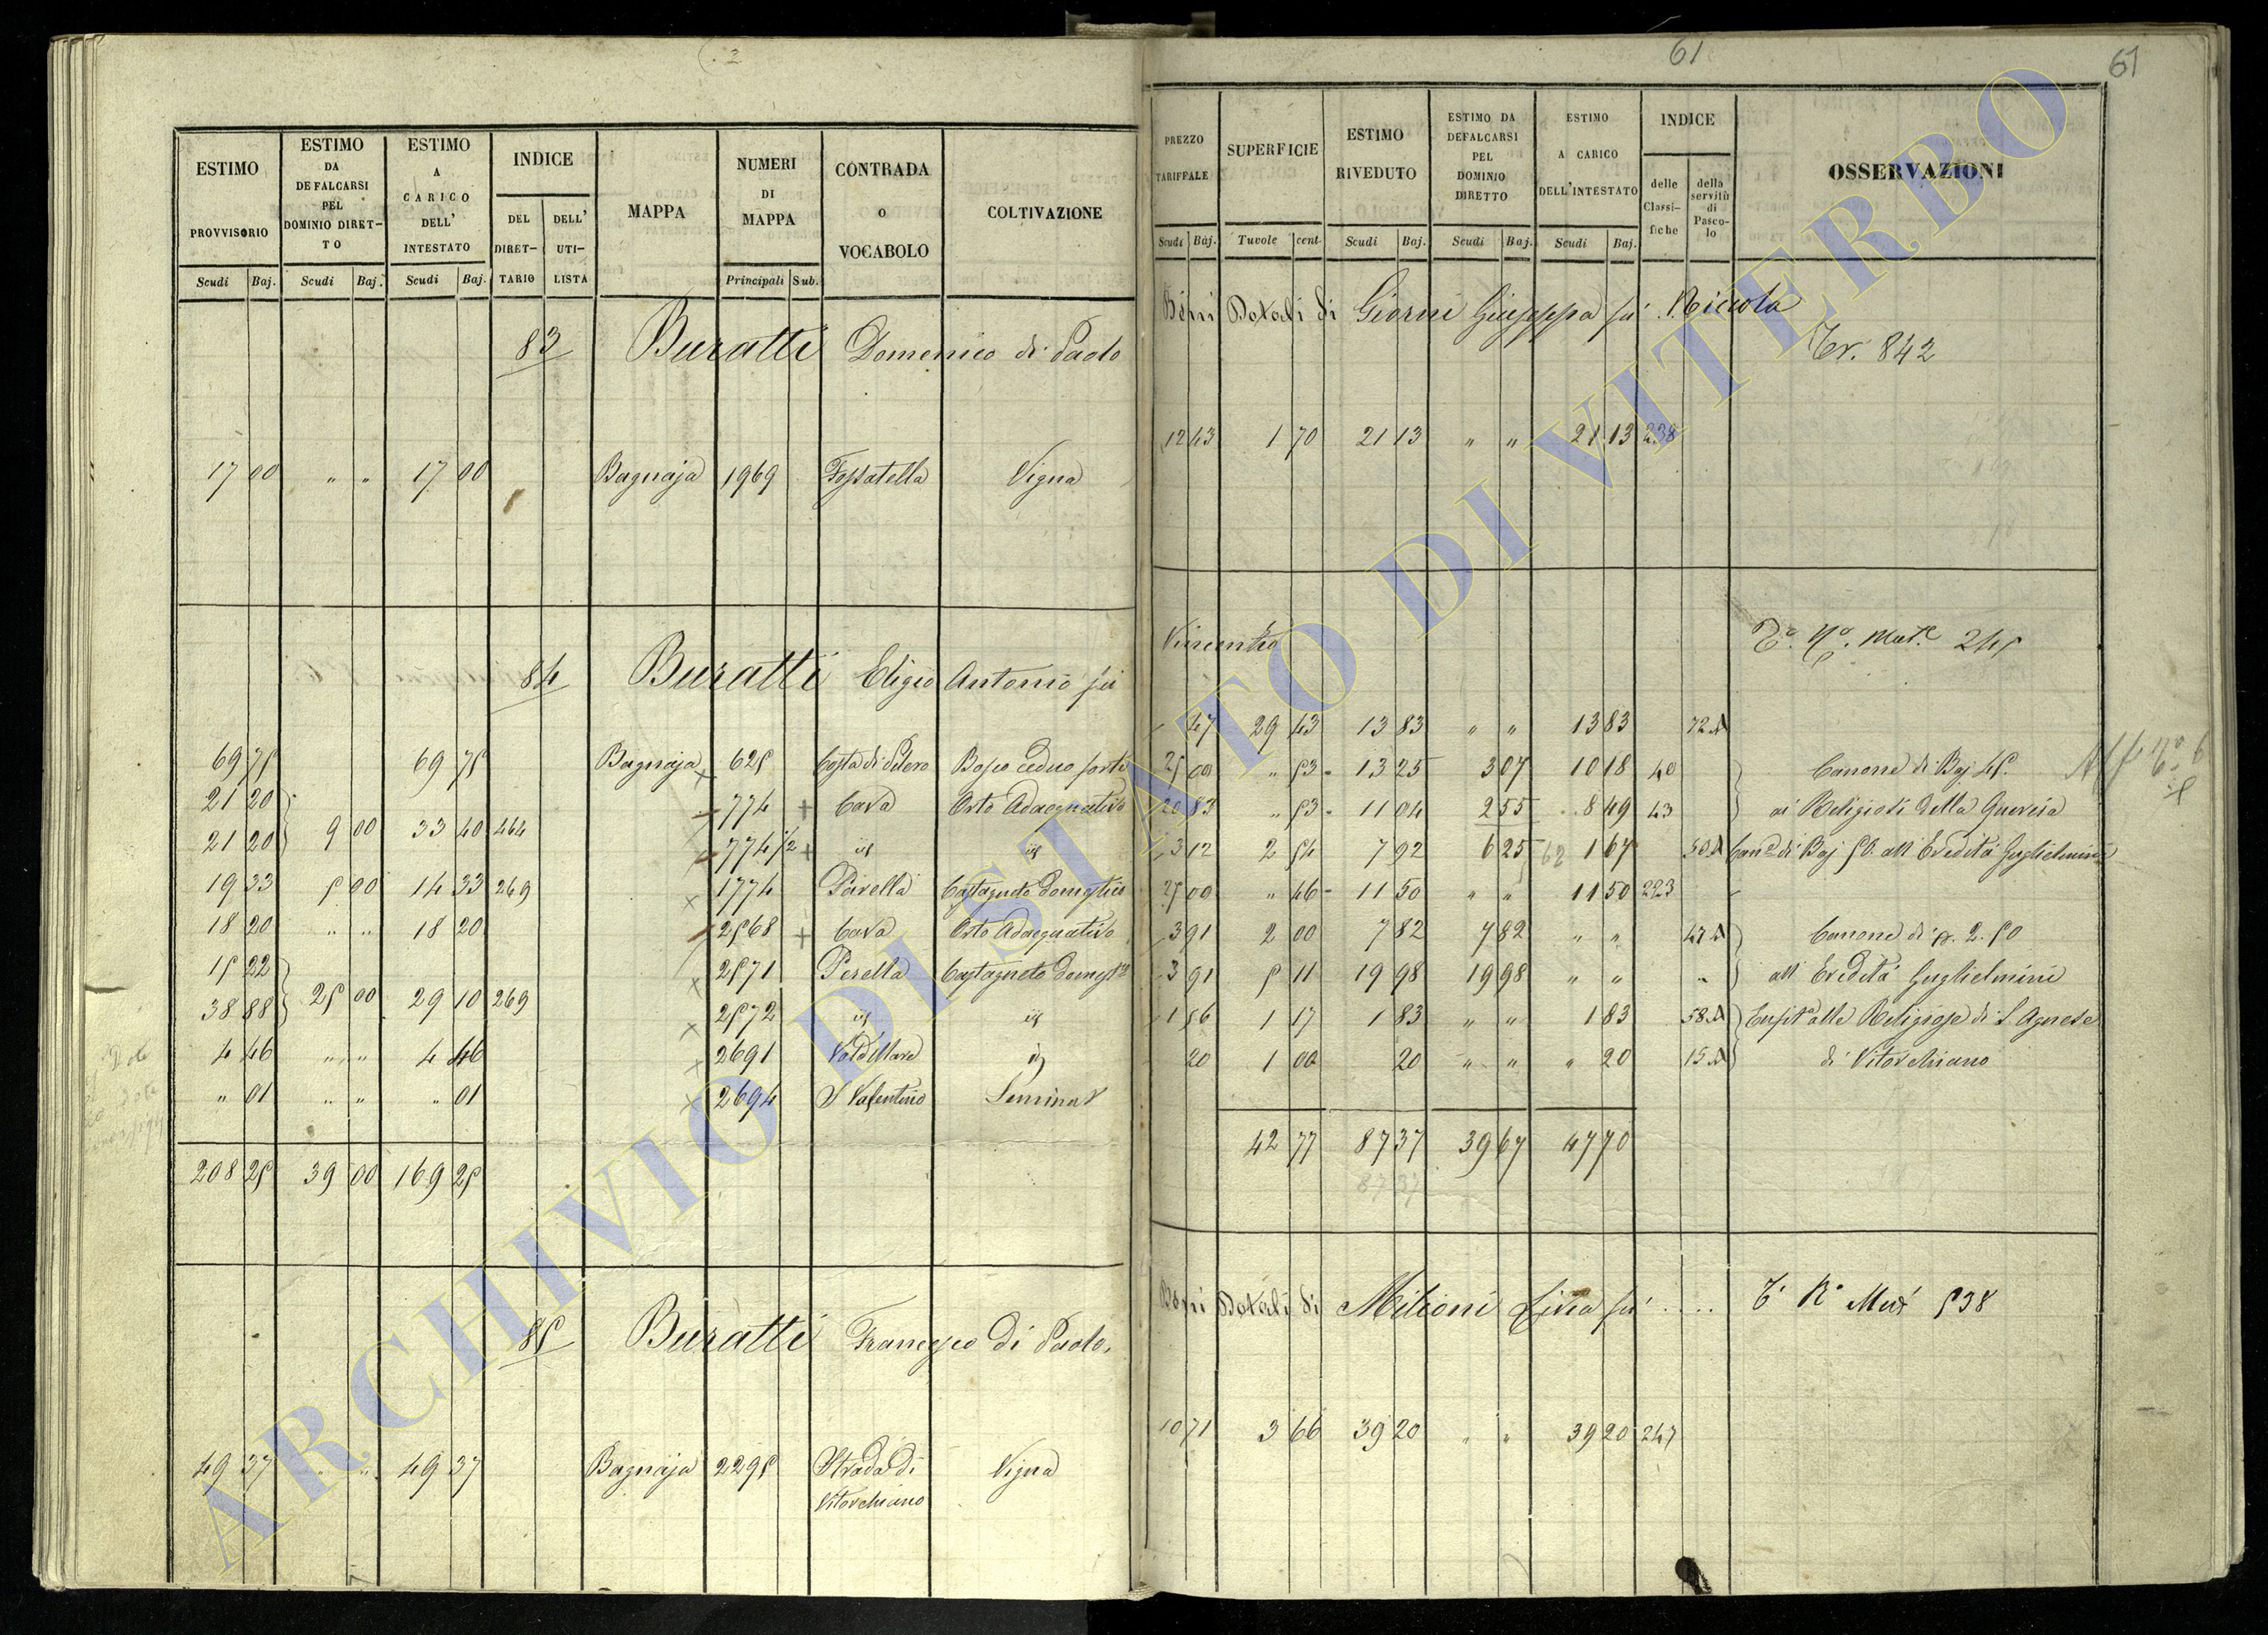 61
61
ESTIMO PROVVISORIO
ESTIMO DA DEFALCARSI PEL DOMINIO DIRETTO
ESTIMO A CARICO DELL' INTESTATO
INDICE
DEL DIRETTARIO
DELL' UTILISTA
MAPPA
NUMERI DI MAPPA
CONTRADA O VOCABOLO
COLTIVAZIONE
Scudi Baj. Scudi Baj. Scudi Baj. Principali Sub.
83 Buratti Domenico di Paolo
17 00 " " 17 00 Bagnaja 1969 Fossatella Vigna
84 Buratti Eligio Antonio fu
69 75 69 75 Bagnaja 625 Costa di Bosco ceduo forte
21 20 774 Cava Orto Adacquativo
9 00 33 40 464
21 20 774 1/2 id id
19 33 5 00 14 33 269 1774 Pavella Castagneto Domestico
18 20 " " 18 20 2568 Cava Orto Adacquativo
15 22 2571 Perella Castagneto Domest
25 00 29 10 269
38 88 2572 id id
4 46 " " 4 46 2691 id
" 01 " " " 01 2694 S Valentino Seminat
208 25 39 00 169 25
85 Buratti Francesco di Paolo
49 37 " " 49 37 Bagnaja 2295 Strada di Vigna
Vitorchiano
PREZZO TARIFFALE
SUPERFICIE
ESTIMO RIVEDUTO
ESTIMO DA DEFALCARSI PEL DOMINIO DIRETTO
ESTIMO A CARICO DELL'INTESTATO
INDICE
delle Classifiche
della servitù di Pascolo
OSSERVAZIONI
Scudi Baj. Tavole cent. Scudi Baj. Scudi Baj. Scudi Baj.
Beni Dotali di Giorni Giuseppa fu Niccola
Tr. 842
12 43 1 70 21 13 " " 21 13 238
Vincenzo
245
47 29 43 13 83 " " 13 83 72 A
25 00 " 53 13 25 3 07 10 18 40 Canone di Baj 45.
20 83 " 53 11 04 2 55 8 49 43 ai Religiosi della Quercia
3 12 2 54 7 92 6 25 1 67 50 A Can.e di Baj 50 all Eredità Guglielmini
25 00 " 46 11 50 " " 11 50 223
3 91 2 00 7 82 7 82 " " 47 A Canone di 2. 50
3 91 5 11 19 98 19 98 " " " all Eredità Guglielmini
1 56 1 17 1 83 " " 1 83 58 A alle Religiose di S. Agnese
20 1 00 20 " " " 20 15 A di Vitorchiano
42 77 87 37 39 67 47 70
87 37
Beni Dotali di Milioni Livia fu ....
538
10 71 3 66 39 20 " " 39 20 247
ARCHIVIO DI STATO DI VITERBO